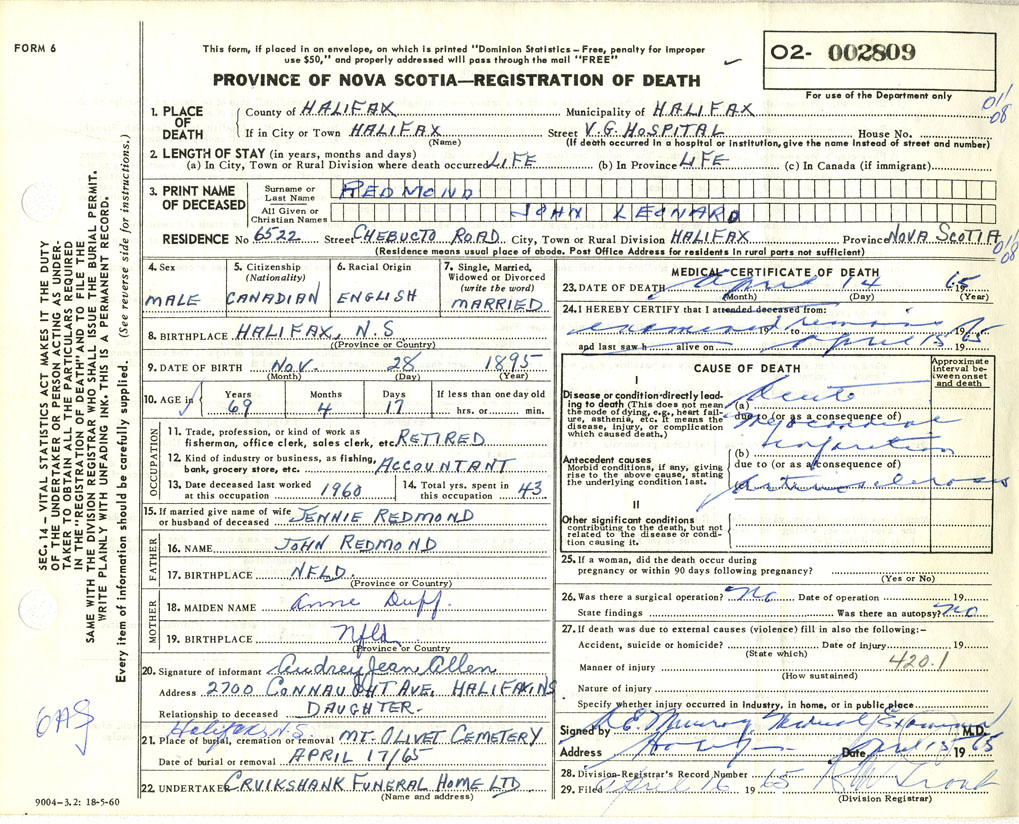 FORM 6
This form, if placed in an envelope, on which is printed "Dominion Statistics – Free, penalty for improper
use $50," and properly addressed will pass through the mail "FREE"
PROVINCE OF NOVA SCOTIA—REGISTRATION OF DEATH
02- 002809
For use of the Department only
011
08
1. PLACE OF DEATH
County of HALIFAX Municipality of HALIFAX
If in City or Town HALIFAX Street V.G. HOSPITAL House No.
(Name) (If death occurred in a hospital or institution, give the name instead of street and number)
2. LENGTH OF STAY (in years, months and days)
(a) In City, Town or Rural Division where death occurred LIFE (b) In Province LIFE (c) In Canada (if immigrant)
3. PRINT NAME OF DECEASED
Surname or Last Name REDMOND
All Given or Christian Names JOHN LEONARD
RESIDENCE No 6522 Street CHEBUCTO ROAD City, Town or Rural Division HALIFAX Province NOVA SCOTIA
(Residence means usual place of abode. Post Office Address for residents in rural parts not sufficient)
011
08
4. Sex MALE
5. Citizenship (Nationality) CANADIAN
6. Racial Origin ENGLISH
7. Single, Married, Widowed or Divorced (write the word) MARRIED
8. BIRTHPLACE HALIFAX, N.S
(Province or Country)
9. DATE OF BIRTH Nov. 28 1895
(Month) (Day) (Year)
10. AGE in Years 69 Months 4 Days 17 If less than one day old hrs. or min.
OCCUPATION
11. Trade, profession, or kind of work as
fisherman, office clerk, sales clerk, etc. RETIRED
12. Kind of industry or business, as fishing,
bank, grocery store, etc. ACCOUNTANT
13. Date deceased last worked at this occupation 1960
14. Total yrs. spent in this occupation 43
15. If married give name of wife
or husband of deceased JENNIE REDMOND
FATHER
16. NAME JOHN REDMOND
17. BIRTHPLACE NFLD.
(Province or Country)
MOTHER
18. MAIDEN NAME Anne Duff.
19. BIRTHPLACE Nfld
(Province or Country)
20. Signature of informant Audrey Jean Allen
Address 2700 CONNAUGHT AVE, HALIFAX NS
Relationship to deceased DAUGHTER.
Halifax, N.S.
21. Place of burial, cremation or removal MT. OLIVET CEMETERY
Date of burial or removal APRIL 17/65
22. UNDERTAKER CRUIKSHANK FUNERAL HOME LTD
(Name and address)
MEDICAL CERTIFICATE OF DEATH
23. DATE OF DEATH April 14 1965
(Month) (Day) (Year)
24. I HEREBY CERTIFY that I attended deceased from:
examined remains 19 to 19
and last saw h alive on April 15 1965
CAUSE OF DEATH
Approximate interval between onset and death
I
Disease or condition directly leading to death (This does not mean the mode of dying, e.g., heart failure, asthenia, etc. It means the disease, injury, or complication which caused death.)
(a) Acute
due to (or as a consequence of)
Myocardial
infarction
Antecedent causes
Morbid conditions, if any, giving rise to the above cause, stating the underlying condition last.
(b)
due to (or as a consequence of)
(c) Arteriosclerosis
II
Other significant conditions
contributing to the death, but not related to the disease or condition causing it.
25. If a woman, did the death occur during
pregnancy or within 90 days following pregnancy?
(Yes or No)
26. Was there a surgical operation? No Date of operation 19
State findings Was there an autopsy? No
27. If death was due to external causes (violence) fill in also the following:–
Accident, suicide or homicide? Date of injury 19
(State which)
420.1
Manner of injury
(How sustained)
Nature of injury
Specify whether injury occurred in industry, in home, or in public place
Signed by Medical Examiner M.D.
Address Date April 15 1965
28. Division Registrar's Record Number
29. Filed April 16 1965
(Division Registrar)
SEC. 14 – VITAL STATISTICS ACT MAKES IT THE DUTY
OF THE UNDERTAKER OR PERSON ACTING AS UNDER-
TAKER TO OBTAIN ALL THE PARTICULARS REQUIRED
IN THE "REGISTRATION OF DEATH" AND TO FILE THE
SAME WITH THE DIVISION REGISTRAR WHO SHALL ISSUE THE BURIAL PERMIT.
WRITE PLAINLY WITH UNFADING INK. THIS IS A PERMANENT RECORD.
Every item of information should be carefully supplied. (See reverse side for instructions.)
9004–3.2: 18-5-60